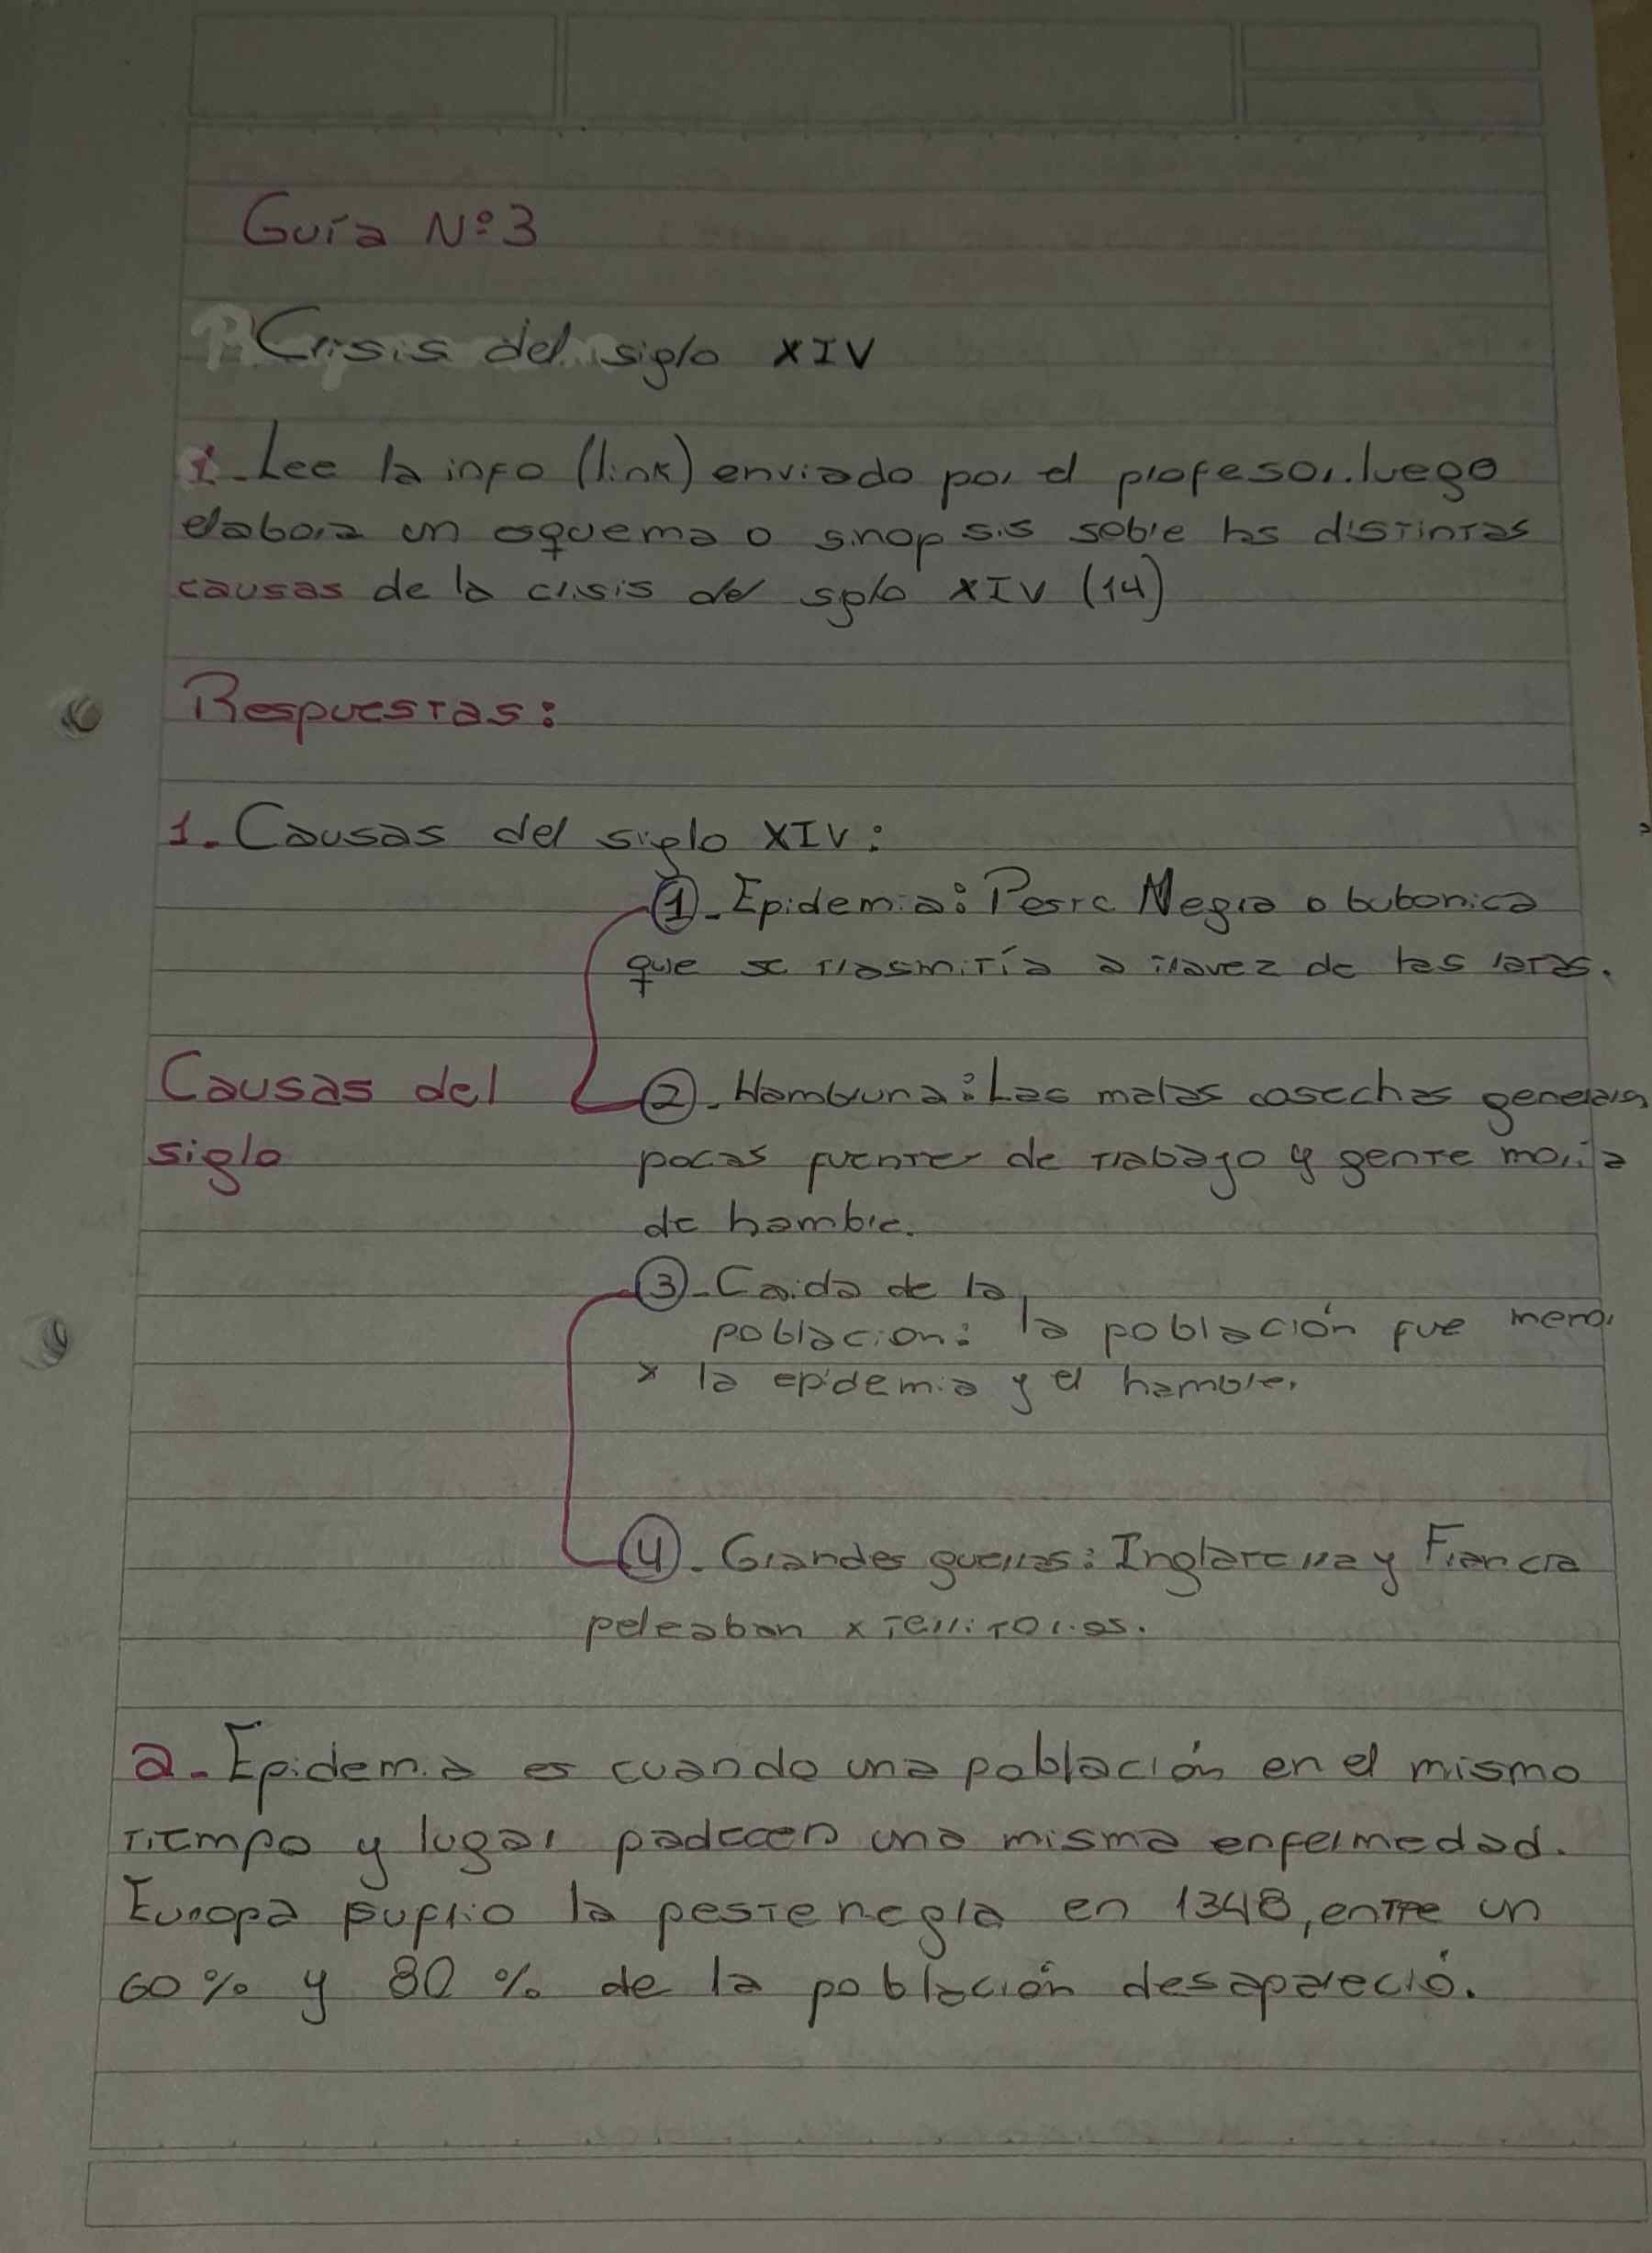 Guía Nº3
Crisis del siglo XIV
1-Lee la info (link) enviado por el profesor.luego
elabora un esquema o sinopsis sobre las distintas
causas de la crisis del siglo XIV (14)
Respuestas:
1-Causas del siglo XIV:
①-Epidemia: Peste Negra o bubonica
que se trasmitía a travez de las ratas.
Causas del
siglo
②-Hambruna: Las malas cosechas generaban
pocas fuentes de trabajo y gente moria
de hambre.
③-Caida de la
poblacion: la población fue menor
x la epidemia y el hambre.
④-Grandes guerras: Inglaterra y Francia
peleaban x territorios.
2-Epidemia es cuando una población en el mismo
tiempo y lugar padecen una misma enfermedad.
Europa sufrio la peste negra en 1348, entre un
60% y 80% de la población desapareció.